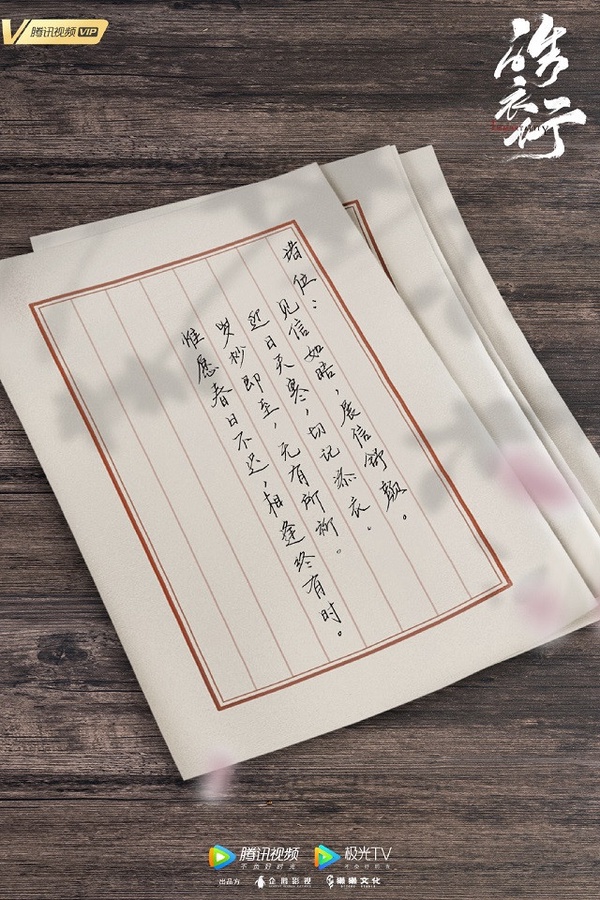 V 腾讯视频 VIP
皓衣行
诸位：
见信如晤，展信舒颜。
近日天寒，切记添衣。
岁杪即至，无有所御。
惟愿春日不迟，相逢终有时。
腾讯视频
不负好时光
极光TV
不负好时光
出品方 企鹅影视